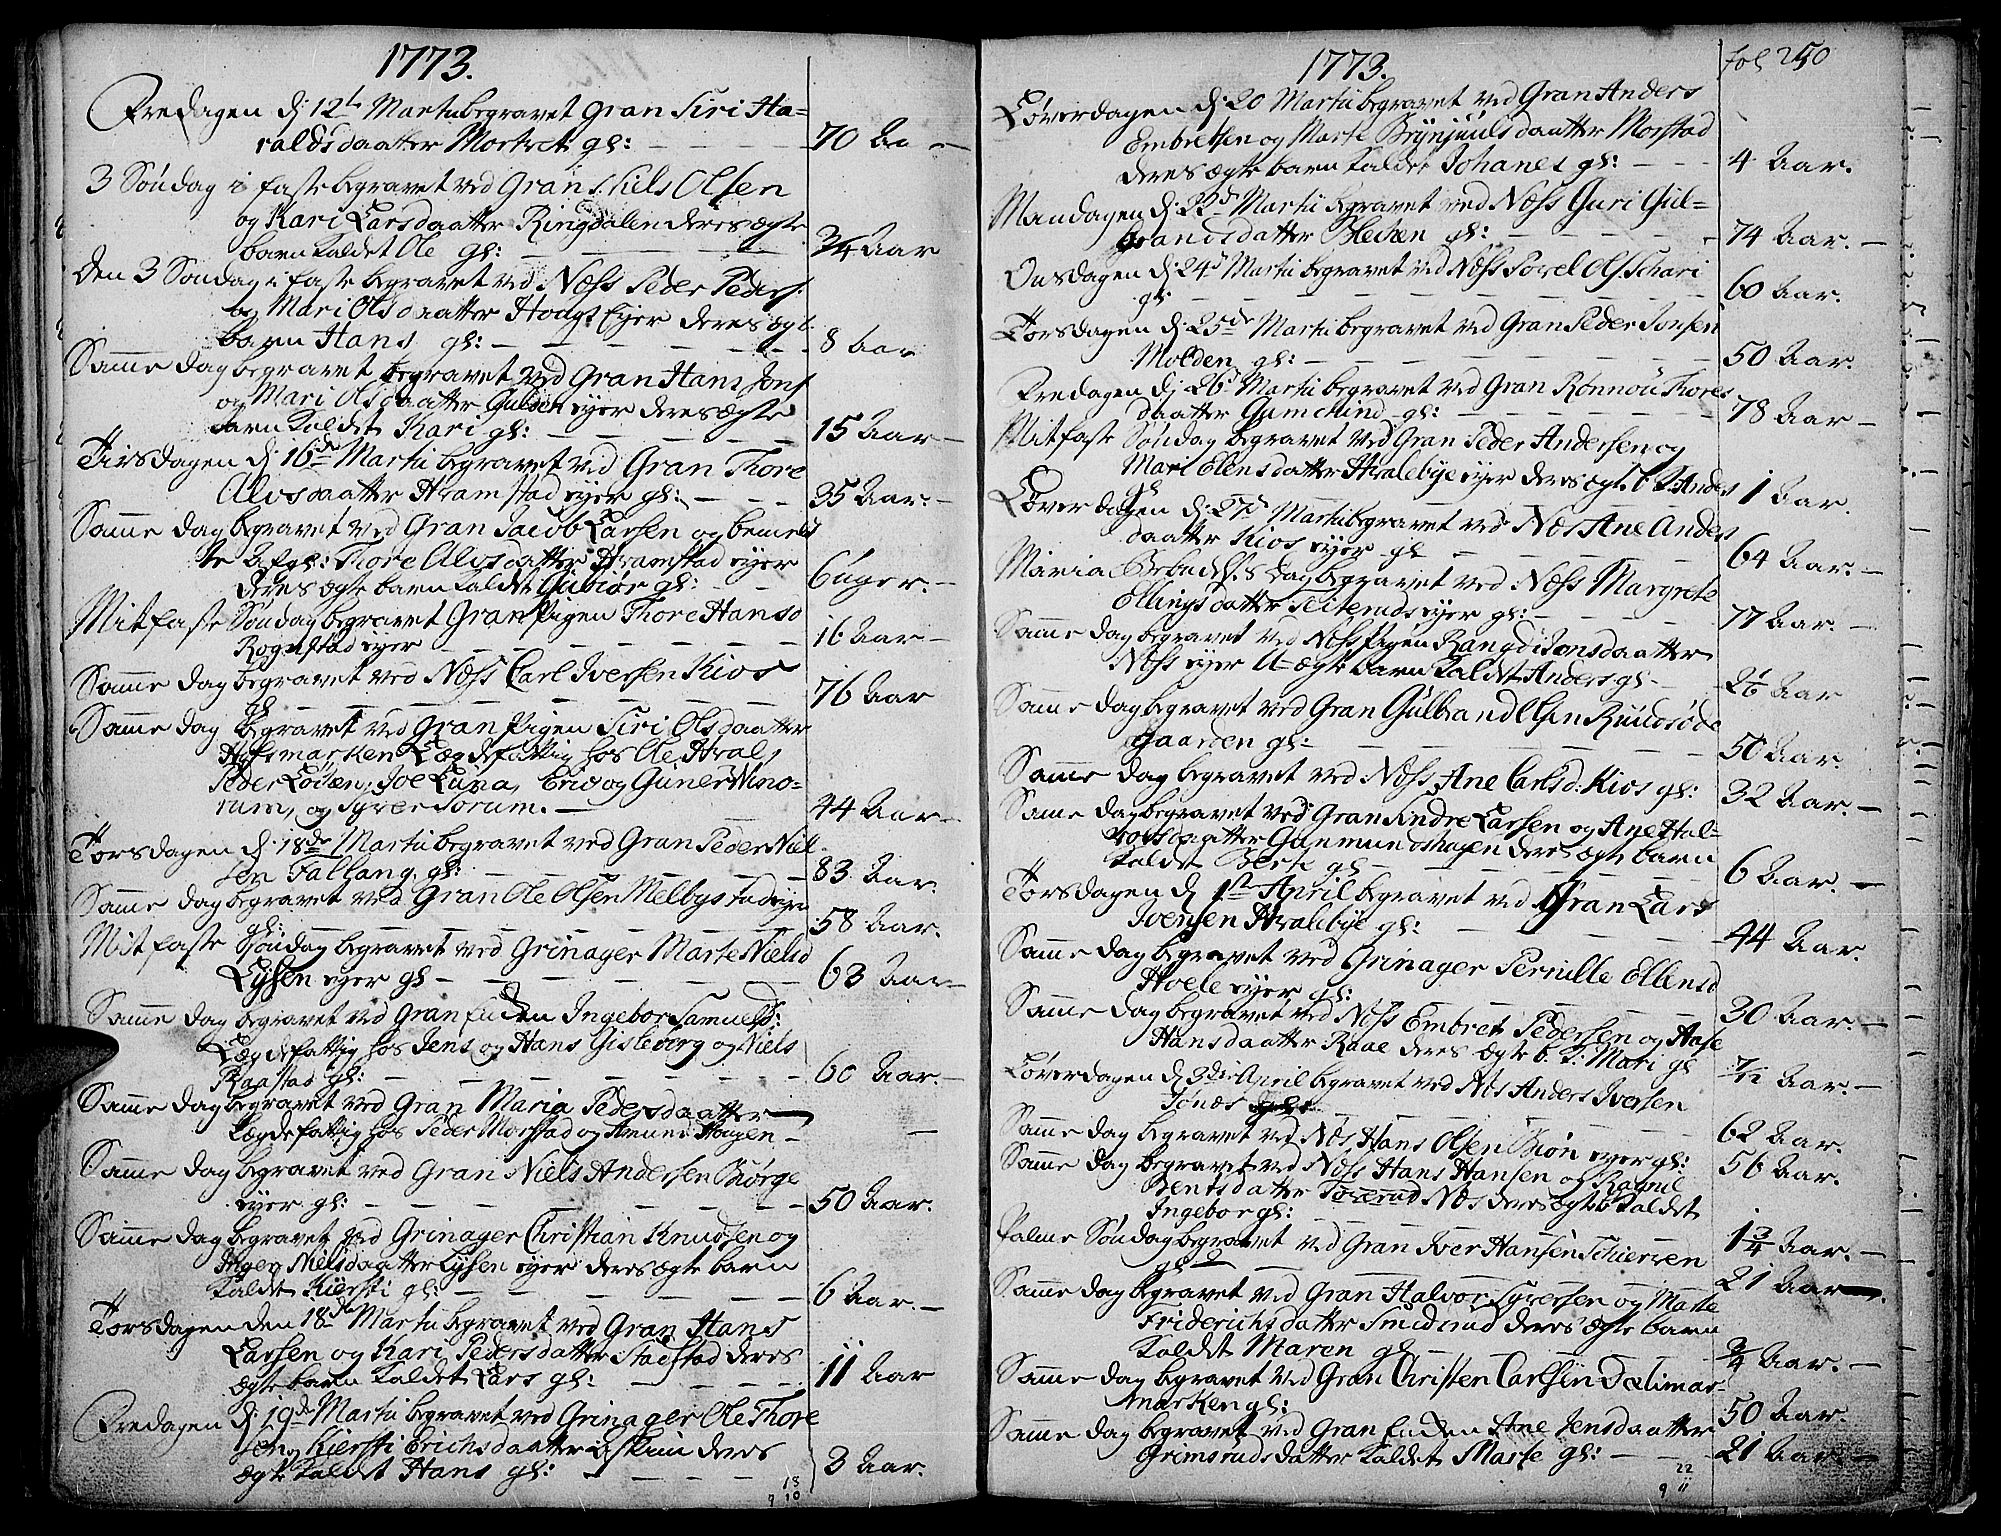 1773.
Fredagen d: 12te Martii begravet Gran Siri Ha-
raldsdaatter Morken gl: 70 Aar
3 Søndag i faste begravet ved Gran Niels Olsen
og Kari Larsdaatter Ringdalen deres ægte
barn kaldet Ole gl: 3/4 Aar
den 3 Søndag i faste begravet ved Næss Peder Peders:
og Mari Olsdaatter Hougs Eyer deres ægte
barn Hans gl: 8 Aar
Samme dag begravet begravet ved Gran Hans Jons
og Mari Olsdaatter Gulden eyer deres ægte
barn kaldet Kari gl: 15 Aar
Tirsdagen d: 16de Martii begravet ved Gran Thore
Alvsdaatter Hramstad eyer gl: 35 Aar
Samme dag begravet ved Gran Jacob Larsen og bemeld
te Afgl: Thore Alvsdaatter Hramstad eyer
deres ægte barn kaldet Gubiør gl: 6 uger
Mitfaste Søndag begravet Gran Pigen Thore Hansd
Rognstad eyer 16 Aar
Samme dag begravet ved Næss Carl Iversen Kios
gl 76 Aar
Samme dag begravet ved Gran Pigen Siri Olsdaatter
Hofsmarken Lægdefattig hos Ole Hval,
Peder Loden, Joe Luna, Eric og Guner Mino-
rum, og Syver Sorum. 44 Aar
Torsdagen d: 18de Martii begravet ved Gran Peder Niel
sen Fallang gl: 83 Aar
Samme dag begravet ved Gran Ole Olsen Melbystad eyer
gl: 58 Aar.
Mitfaste Søndag begravet ved Grinager Marte Nielsd
Lysen eyer gl 63 Aar
Samme dag begravet ved Gran Enken Ingebor Samuelsd:
Lægdefattig hos Jens og Hans Gisleberg og Niels
Raastad gl: 60 Aar.
Samme dag begravet ved Gran Maria Pedersdaatter
Lægdefattig hos Peder Morstad og Amund Hagen
Samme dag begravet ved Gran Niels Andersen Børge
eyer gl: 50 Aar.
Samme dag begravet ved Grinager Christian Knudsen og
Nielsdaatter Lysen eyer deres ægte barn
kaldet Kiersti gl: 6 Aar.
Torsdagen den 18de Martii begravet ved Gran Hans
Larsen og Kari Pedersdaatter Stadstad deres
ægte barn kaldet Lars gl: 11 Aar
Fredagen d: 19de Martii begravet ved Grinager Ole Thore
sen og Kiersti Erichsdaatter Askim deres
ægte kaldet Hans gl: 3 Aar.
18
9 10
1773.
fol 250
Løverdagen d: 20 Martii begravet ved Gran Anders
Embretsen og Marte Brynjuulsdaatter Morstad
deres ægte barn kaldet Johanes gl: 4 Aar.
Mandagen d: 22de Martii begravet ved Næss Guri Gul-
brandsdatter Blechen gl: 74 Aar.
Onsdagen d: 24de Martii begravet ved Næss Povel Ols Schari
gl: 60 Aar.
Torsdagen d: 25de Martii begravet ved Gran Peder Jonsen
Molden gl: 50 Aar.
Fredagen d: 26de Martii begravet ved Gran Rønnou Thores
daatter Gamchind gl: 78 Aar
Mitfaste Søndag begravet ved Gran Peder Andersen og
Mari Elensdatter Hvalebye eyer deres ægte b k: Anders
gl 1 Aar.
Løverdagen d: 27de Martii begravet ved Næs Ane Anders
daatter Kios eyer gl 64 Aar.
Maria Bebudels:s dag begravet ved Næss Margrete
Ellingsdatter Teiterudseyer gl: 77 Aar.
Samme dag begravet ved Næss Pigen Rangdi Jonsdaatter
Næss eyer U-ægte barn kaldet Anders gl 2 1/6 Aar
Samme dag begravet ved Gran Gulbrand Elsen Rundsøde
gaarden gl: 50 Aar.
Samme dag begravet ved Næss Ane Carlsd: Kios gl: 32 Aar.
Samme dag begravet ved Gran Andre Larsen og Ane Hal-
vorsdaatter Ganmundshagen deres ægte barn
kaldet Berte gl 6 Aar.
Torsdagen d 1ste April begravet ved Gran Lars
Iversen Hvalebye gl: 44 Aar.
Samme dag begravet ved Grinager Pernille Ellensd
Hvele eyer gl: 30 Aar.
Samme dag begravet ved Næss Embret Pedersen og Aase
Hansdaatter Raae deres ægte b. k: Mari gl 7/12 Aar.
Løverdagen d 3die April begravet ved Næs Anders Iversen
Tønæs 62 Aar.
Samme dag begravet ved Næs Hans Olsen Biøn eyer gl: 56 Aar.
Samme dag begravet ved Næss Hans Hansen og Ragnil
Berntsdatter Torerud Næs deres ægte b kaldet
Ingebor gl: 1 3/4 Aar.
Palme Søndag begravet ved Gran Iver Hansen Schiervven
gl 21 Aar.
Samme dag begravet ved Gran Halvor Syversen og Marte
Friderichsdatter Smedrud deres ægte barn
kaldet Maren gl 3/4 Aar.
Samme dag begravet ved Gran Christen Carlsen Dælimar-
marken gl: 50 Aar.
Samme dag begravet ved Gran Enken Ane Jensdaatter
Grimsruds datter kaldet Marte gl: 21 Aar.
22
9 11